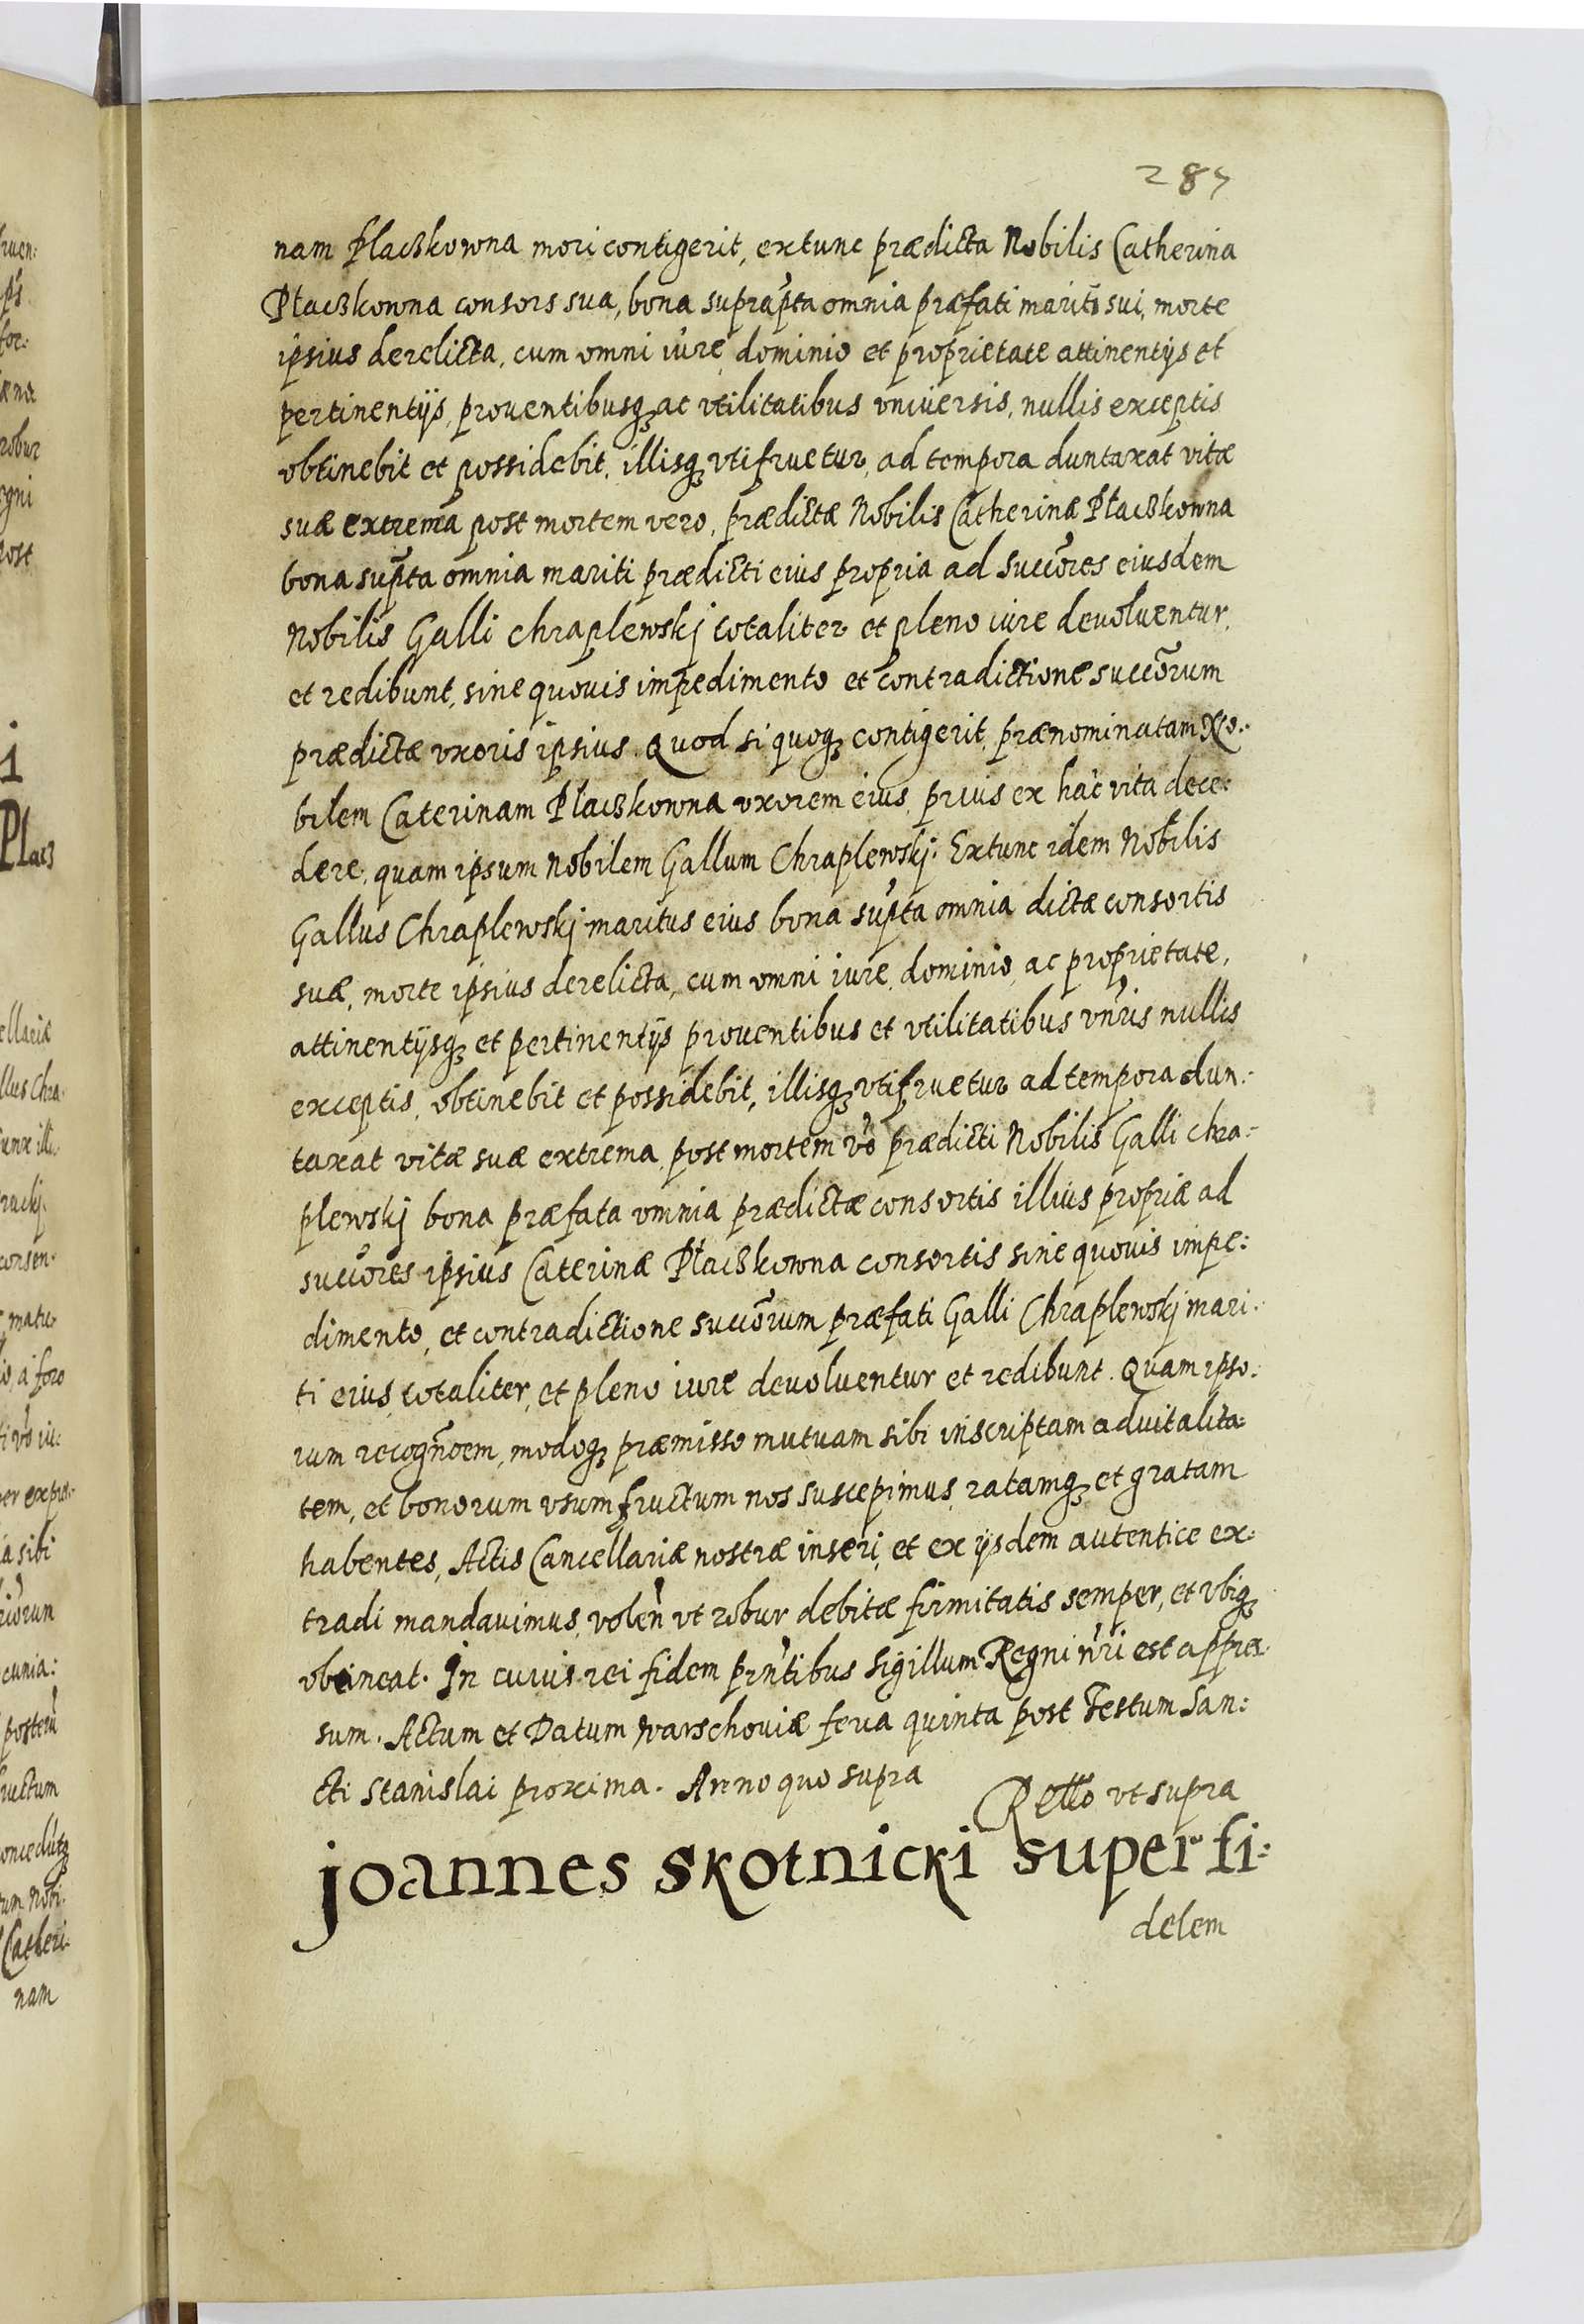 285
nam Placzkowna mori contigerit, extunc prædicta Nobilis Catherina
Płaczkowna consors sua, bona suprapta omnia præfati mariti sui, morte
ipsius derelicta, cum omni iure dominio et proprietate attinentijs et
pertinentijs, prouentibusq3 ac vtilitatibus vniuersis, nullis exceptis
obtinebit et possidebit, illisq3 vtifruetur, ad tempora duntaxat vitæ
suæ extrema post mortem vero, prædictæ Nobilis Catherinæ Płaczkowna
bona supta omnia mariti prædicti eius propria ad succores eiusdem
Nobilis Galli Chraplewskj totaliter et pleno iure deuoluentur,
et redibunt, sine quouis impedimento et contradictione succorum
prædictæ vxoris ipsius. Quod si quoq3 contigerit, prænominatam No:
bilem Caterinam Placzkowna vxorem eius, prius ex hac vita dece:
dere, quam ipsum Nobilem Gallum Chraplewskj: Extunc idem Nobilis
Gallus Chraplewskj maritus eius bona supta omnia dictæ consortis
suæ, morte ipsius derelicta, cum omni iure, dominio, ac proprietate,
attinentijsq3 et pertinentijs prouentibus et vtilitatibus vnris nullis
exceptis, obtinebit et possidebit, illisq3 vtifruetur ad tempora dun:
taxat vitæ suæ extrema, post mortem vo prædicti Nobilis Galli Chra:
plewskj bona præfata omnia prædictæ consortis illius propriæ ad
succores ipsius Caterinæ Płaczkowna consortis sine quouis impe:
dimento, et contradictione succorum præfati Galli Chraplewskj mari:
ti eius, totaliter, et pleno iure deuoluentur et redibunt. Quam ipso:
rum recognoem, modoq3 præmisso mutuam sibi inscriptam aduitalita:
tem, et bonorum vsumfructum nos suscepimus, ratamq3 et gratam
habentes, Actis Cancellariæ nostræ inseri, et ex ijsdem autentice ex:
tradi mandauimus, volen vt robur debitæ firmitatis semper, et vbiq3
obtineat. In cuius rei fidem prntibus Sigillum Regni nri est appres:
sum. Actum et Datum Warschouiæ feria quinta post Festum San:
cti Stanislai proxima. Anno quo supra
Rello vt supra
Joannes Skotnicki super fi:
delem